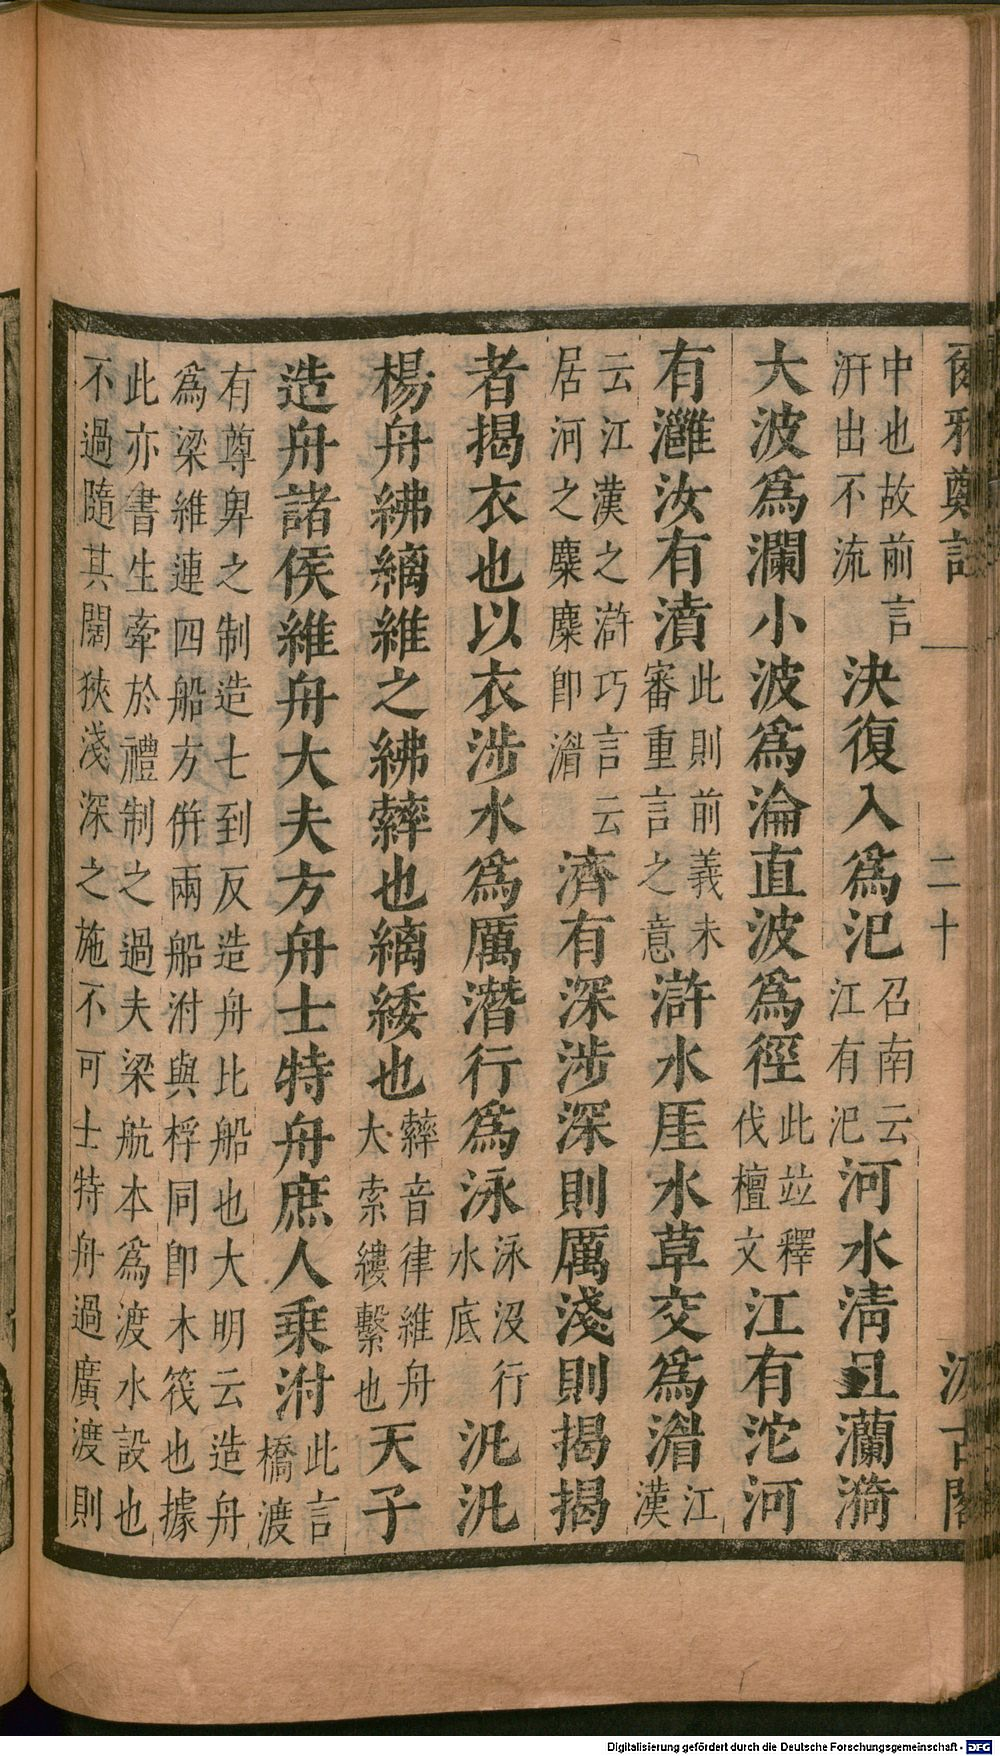 爾雅鄭註
二十
汲古閣
中也故前言
汧出不流
決復入爲汜
召南云
江有汜
河水清且瀾漪
大波爲瀾小波爲淪直波爲徑
此竝釋
伐檀文
江有沱河
有灉汝有濆
此則前義未
審重言之意
滸水厓水草交爲湄
江
漢
云江漢之滸巧言云
居河之麋麋卽湄
濟有深涉深則厲淺則揭揭
者揭衣也以衣涉水爲厲潛行爲泳
泳沒行
水底
汎汎
楊舟紼縭維之紼䋾也縭緌也
䋾音律維舟
大索縷繫也
天子
造舟諸侯維舟大夫方舟士特舟庶人乗泭
此言
橋渡
有尊卑之制造七到反造舟比船也大明云造舟
爲梁維連四船方併兩船泭與桴同卽木筏也據
此亦書生牽於禮制之過夫梁航本爲渡水設也
不過隨其闊狹淺深之施不可士特舟過廣渡則
Digitalisierung gefördert durch die Deutsche Forschungsgemeinschaft - DFG